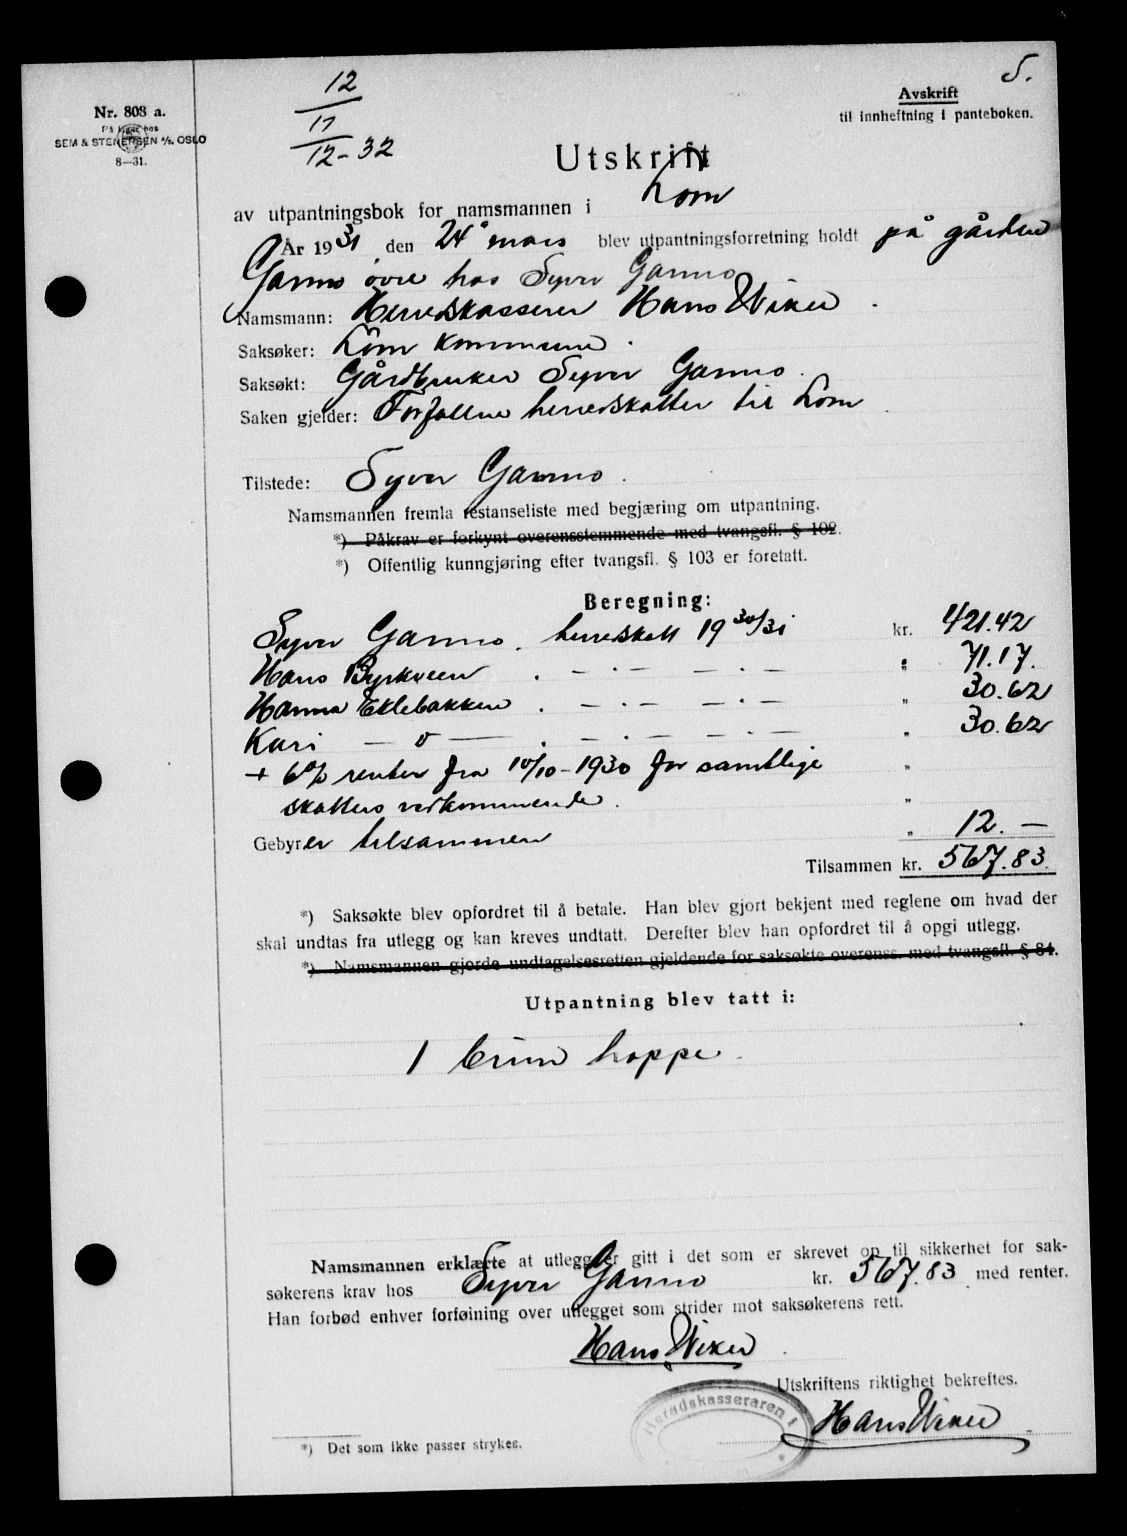 5.
12
17
12-32
Avskrift
til innheftning i panteboken.
Nr. 808 a.
På lager hos
SEM & STENERSEN A/S. OSLO
8—31.
Utskrift
av utpantningsbok for namsmannen i Lom
År 1931 den 24 mars blev utpantningsforretning holdt på gården
Garmo øvre hos Syver Garmo
Namsmann: Herredskasserer Hans Wiker
Saksøker: Lom kommune.
Saksøkt: Gårdbruker Syver Garmo.
Saken gjelder: Forfallne herredskatter til Lom
Tilstede: Syver Garmo.
Namsmannen fremla restanseliste med begjæring om utpantning.
*) Påkrav er forkynt overensstemmende med tvangsfl. § 102.
*) Offentlig kunngjøring efter tvangsfl. § 103 er foretatt.
Beregning:
Syver Garmo. herredskatt 1930/31 kr. 421.42
Hans Byrkveen . — . — — . — " 71.17.
Hanna Eklebakken . — . — — . — " 30.62
Kari — o — . — . — — . — " 30.62
+ 6% renter fra 10/10-1930 for samtlige "
skatters vedkommende. "
Gebyrer tilsammen " 12.—
Tilsammen kr. 567.83.
*) Saksøkte blev opfordret til å betale. Han blev gjort bekjent med reglene om hvad der
skal undtas fra utlegg og kan kreves undtatt. Derefter blev han opfordret til å opgi utlegg.
*) Namsmannen gjorde undtagelsesretten gjeldende for saksøkte overenss. med tvangsfl. § 84.
Utpantning blev tatt i:
1 brun hoppe.
Namsmannen erklærte at utlegg er gitt i det som er skrevet op til sikkerhet for sak-
søkerens krav hos Syver Garmo kr. 567.83 med renter.
Han forbød enhver forføining over utlegget som strider mot saksøkerens rett.
Hans Wiker
Utskriftens riktighet bekreftes.
Heradskasseraren i
Hans Wiker
*) Det som ikke passer strykes.